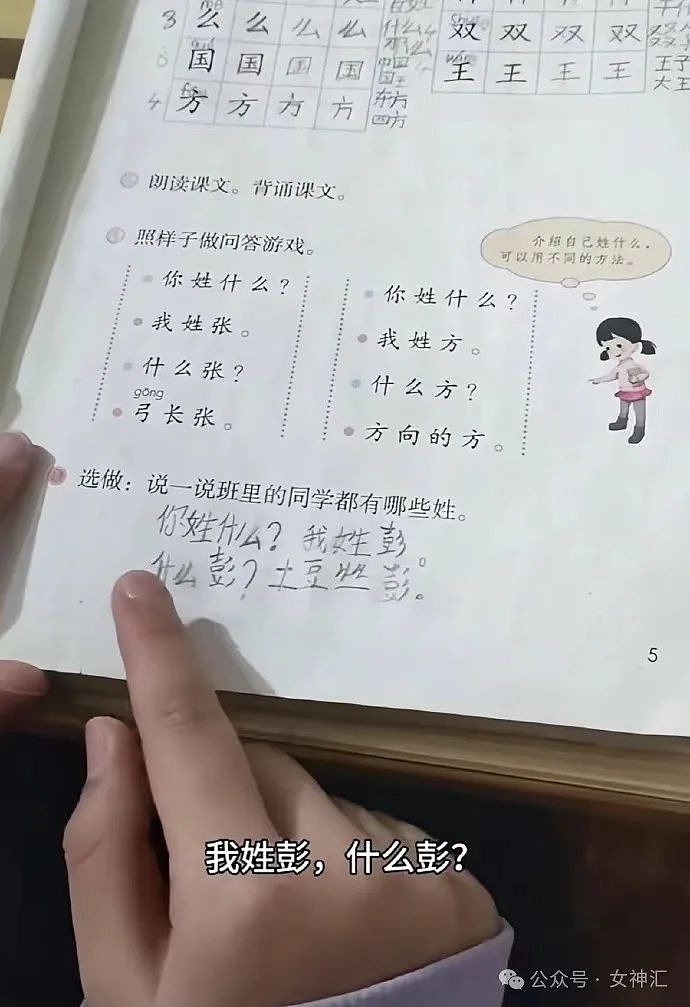 3 么 么 么 么 什么
双 双 双 双
国 国 国 国 中国
王 王 王 王 王子
大王
4 方 方 方 方 东方
四方
朗读课文。背诵课文。
照样子做问答游戏。
介绍自己姓什么，
可以用不同的方法。
你姓什么？
我姓张。
什么张？
gōng
弓长张。
你姓什么？
我姓方。
什么方？
方向的方。
选做：说一说班里的同学都有哪些姓。
你姓什么？我姓彭。
什么彭？土豆丝彭。
5
我姓彭，什么彭？
公众号·女神汇